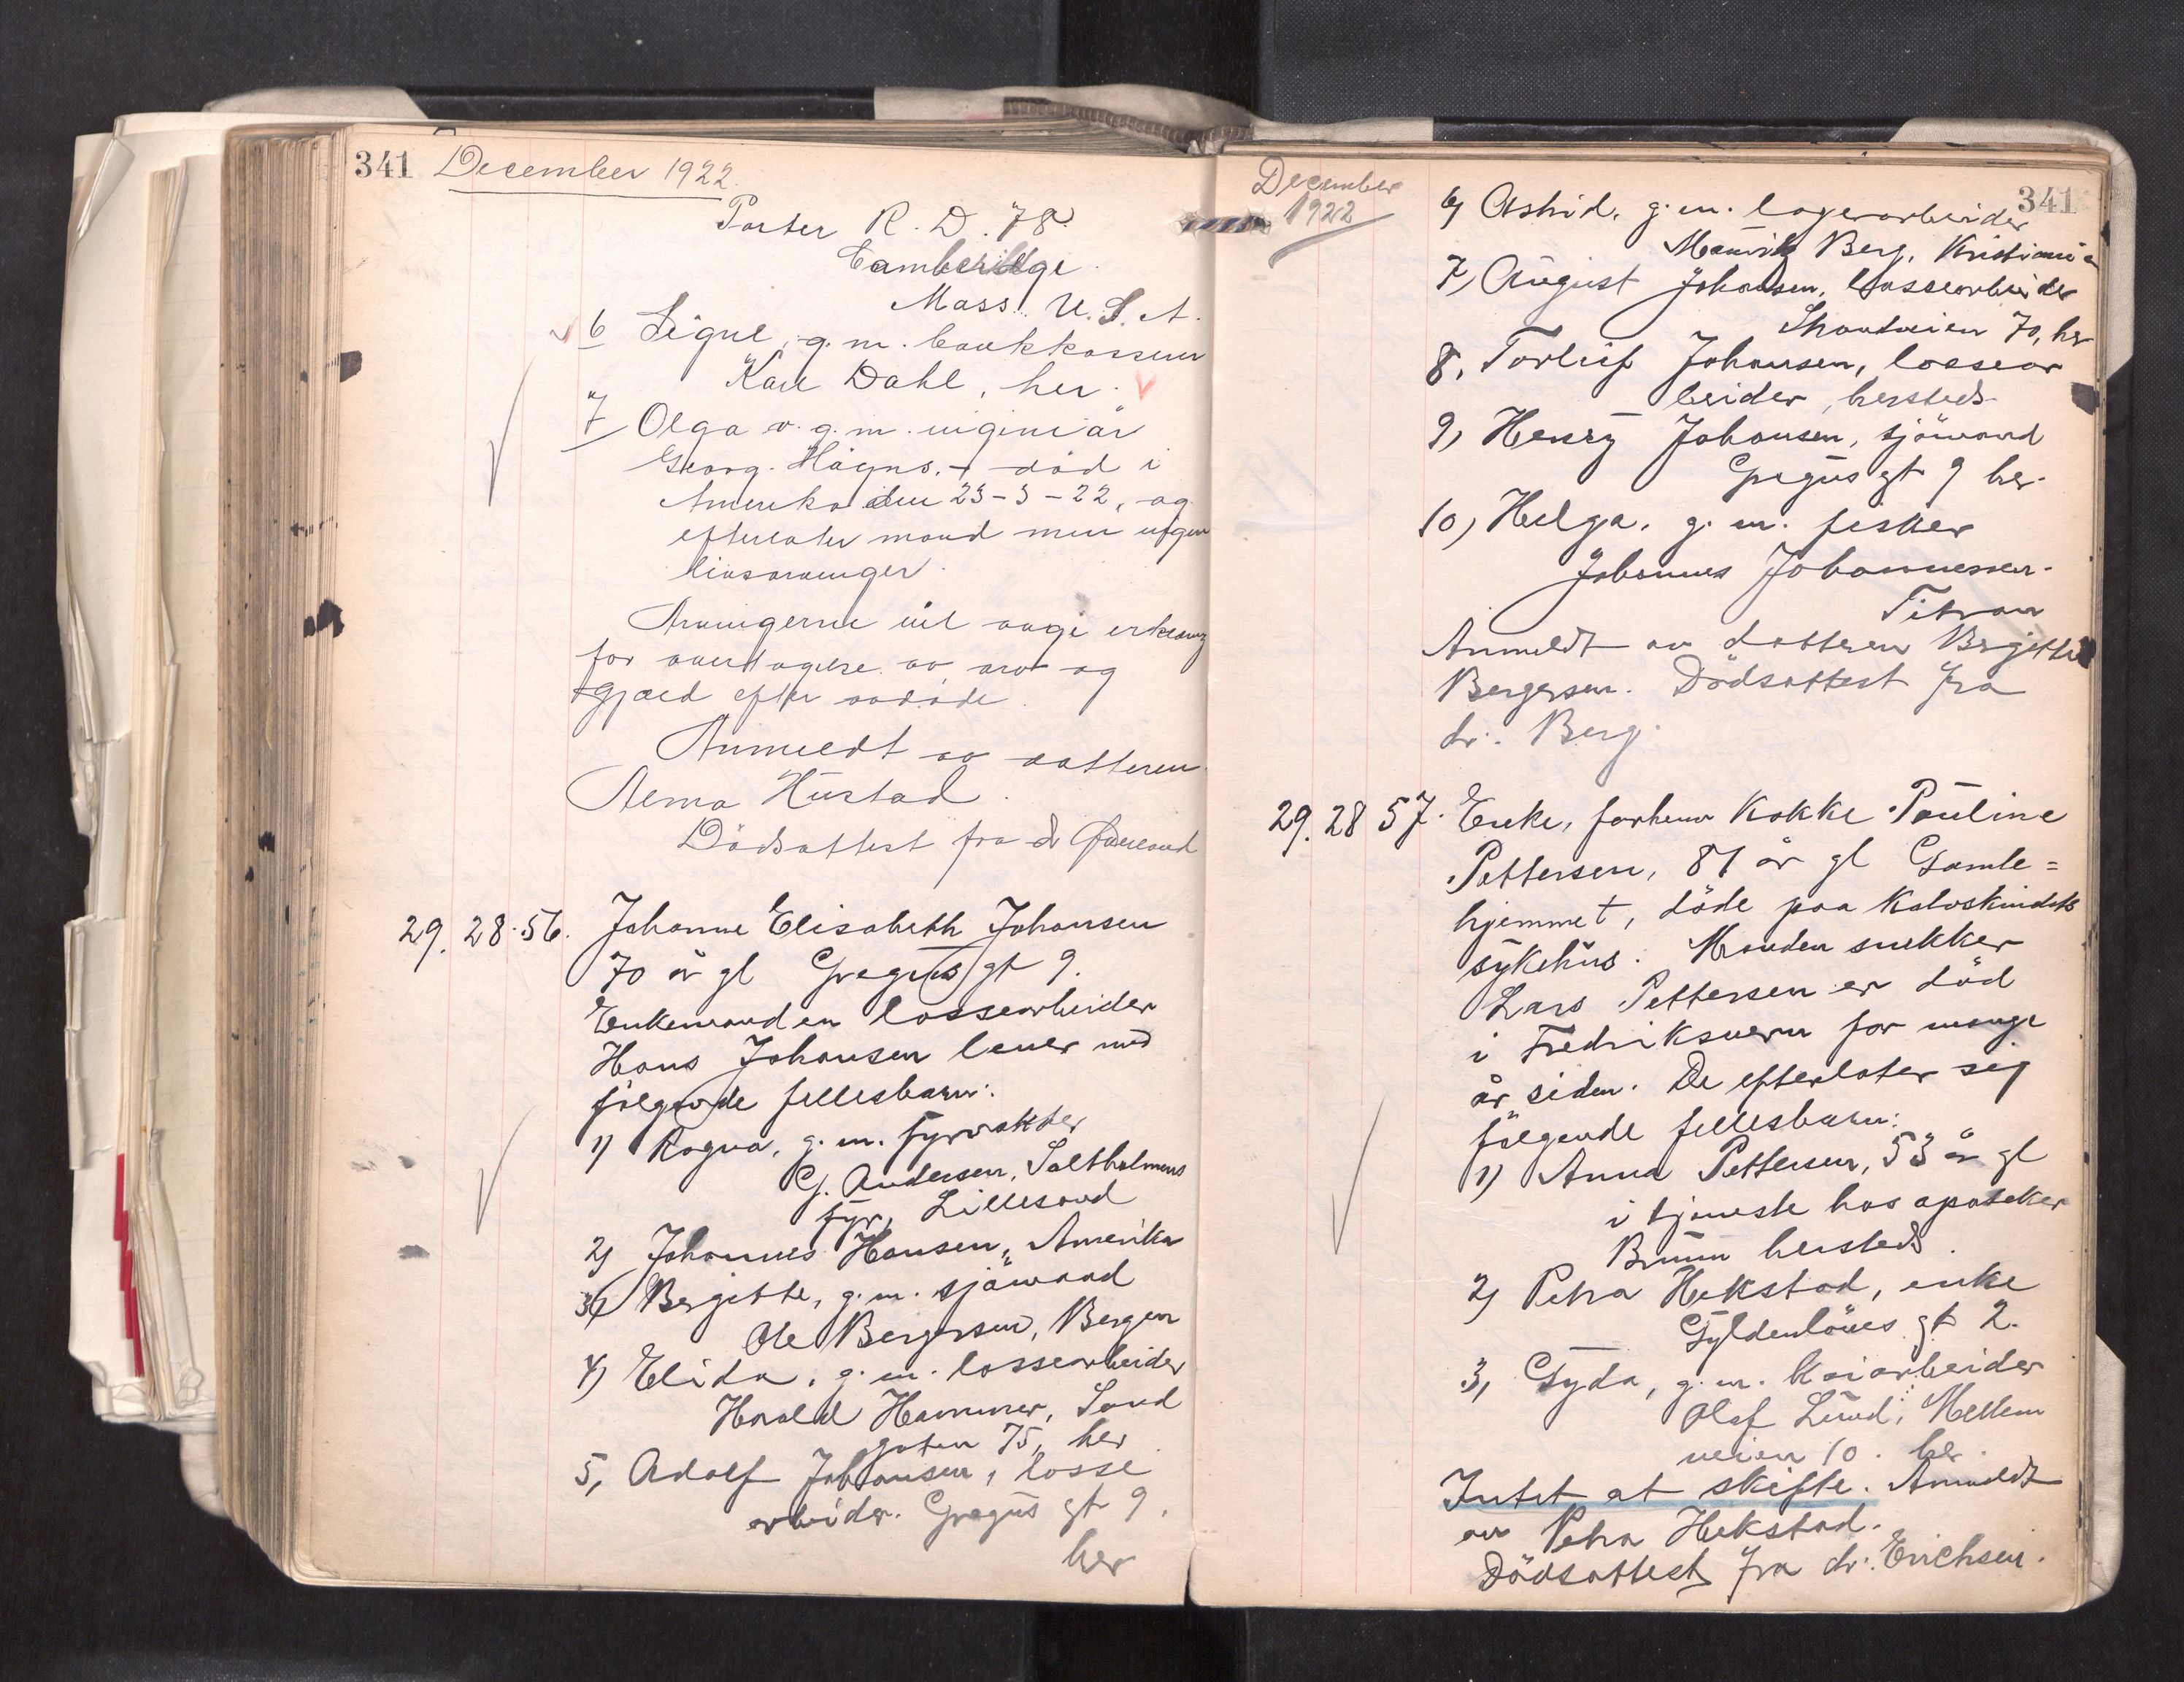 341 December 1922.
Porter R. D. 78.
Cambridge
Mass. U. S. A.
6 Signe, g. m. bankkasserer
Karl Dahl, her.
7 Olga v. g. m. ingeniør
Georg. Høyns. død i
Amerika den 23-3-22, og
efterlater mand men ingen
livsarvinger.
Arvingerne vil avgi erklæring
for overtagelse av arv og
gjæld efter avdøde.
Anmeldt av datteren
Alma Hustad.
Dödsattest fra dr
29. 28. 56. Johanne Elisabeth Johansen
70 år gl Gregus gt 9.
Enkemanden lossearbeider
Hans Johansen lever med
følgende fellesbarn:
1) Ragna, g. m. fyrvokter
G. Andersen, Saltholmens
fyr, Lillesand
2) Johannes Hansen, Amerika
3) Bergitte, g. m. sjömand
Ole Bergersen, Bergen
4) Elida, g. m. lossearbeider
Harald Hammer, Sand
gaten 75, her
5, Adolf Johansen, losse
arbeider. Gregus gt 9.
her
December
1922
341
6) Astrid, g. m. lagerarbeider
Berg, Kristiania
7, August Johansen, lossearbeider
Strandveien 70, her
8, Torleif Johansen, lossear
beider, hersteds.
9, Henry Johansen, sjömand
Gregus gt 9 her.
10, Helga, g. m. fisker
Johannes Johannessen.
Titran
Anmeldt av datteren Bergitte
Bergersen. Dödsattest fra
dr. Berg.
29. 28 57. Enke, forhenv kokke Pauline
Pettersen, 81 år gl Gamle=
hjemmet, döde paa Kalvskindets
sykehus. Manden snekker
Lars Pettersen er död
i Fredriksvern for mange
år siden. De efterlater seg
følgende fellesbarn:
1) Anna Pettersen, 53 år gl
i tjeneste hos apoteker
Bruun hersteds.
2, Petra Hekstad, enke
Gyldenlöves gt 2.
3, Gyda, g. m. kaiarbeider
Olaf Lund, Mellem
veien 10. her.
Intet at skifte. Anmeldt
av Petra Hekstad.
Dödsattest fra dr. Erichsen.